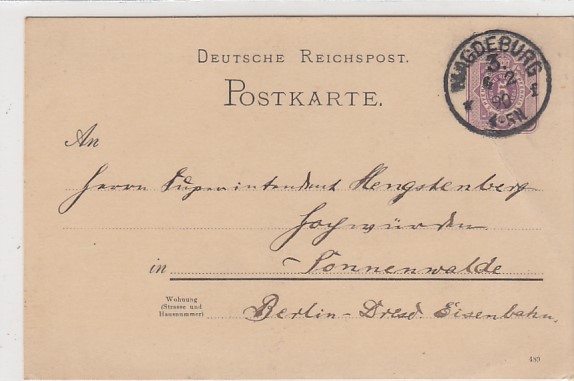 DEUTSCHE REICHSPOST.
POSTKARTE.
MAGDEBURG
An
Herrn Superintendent Hengstenberg
Hochwürden
in Sonnenwalde
Wohnung
(Strasse und
Hausnummer)
Berlin-Dresd. Eisenbahn.
489